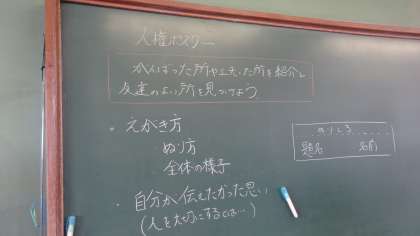 人権ポスター
がんばった所や工夫した所を紹介し
友達のよい所を見つけよう
・えがき方
ぬり方
全体の様子
・自分が伝えたかった思い
(人を大切にするとは…)
のりしろ
題名 名前